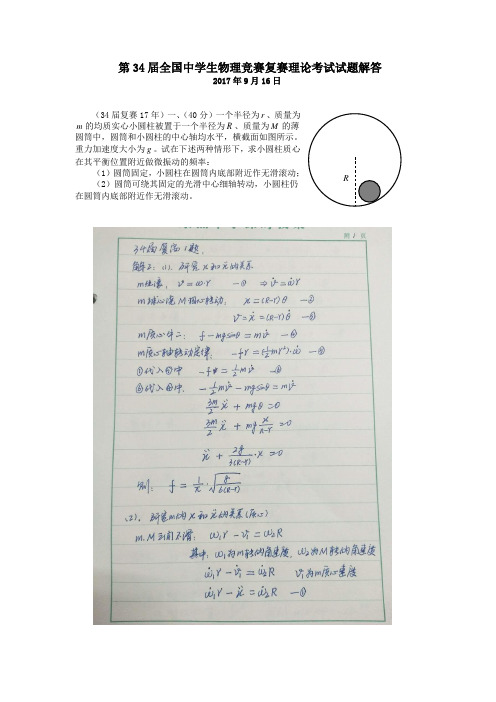 第 34 届全国中学生物理竞赛复赛理论考试试题解答
2017 年 9 月 16 日
（34 届复赛 17 年）一、（40 分）一个半径为 r、质量为
m 的均质实心小圆柱被置于一个半径为 R、质量为 M 的薄
圆筒中，圆筒和小圆柱的中心轴均水平，横截面如图所示。
重力加速度大小为 g。试在下述两种情形下，求小圆柱质心
在其平衡位置附近做微振动的频率：
（1）圆筒固定，小圆柱在圆筒内底部附近作无滑滚动；
（2）圆筒可绕其固定的光滑中心细轴转动，小圆柱仍
在圆筒内底部附近作无滑滚动。
R
第 1 页
34届复赛1题.
解答2: (1). 研究 x 和 ẍ 的关系
m纯滚. v=ω·r —① ⇒ v̇=ω̇r
m球心绕M轴心转动: x=(R-r)θ —②
v=ẋ=(R-r)θ̇ —③
m质心牛二: f-mgsinθ=mv̇ —④
m质心轴转动定律: -fr=(½mr²)·ω̇ —⑤
①代入⑤中 -f=½mv̇ —⑥
⑥代入④中. -½mv̇-mgsinθ=mv̇
3m/2 ẍ+mgθ=0
3m/2 ẍ+mg x/(R-r)=0
ẍ+2g/3(R-r)·x=0
则: f=1/π·√(g/6(R-r))
(2). 研究m的 x 和 ẍ 的关系(质心)
m.M之间不滑: ω₁r-v₁=ω₂R
其中: ω₁为m转的角速度, ω₂为M转的角速度
ω̇₁r-v̇₁=ω̇₂R v₁为m质心速度
ω̇₁r-ẍ=ω̇₂R —①